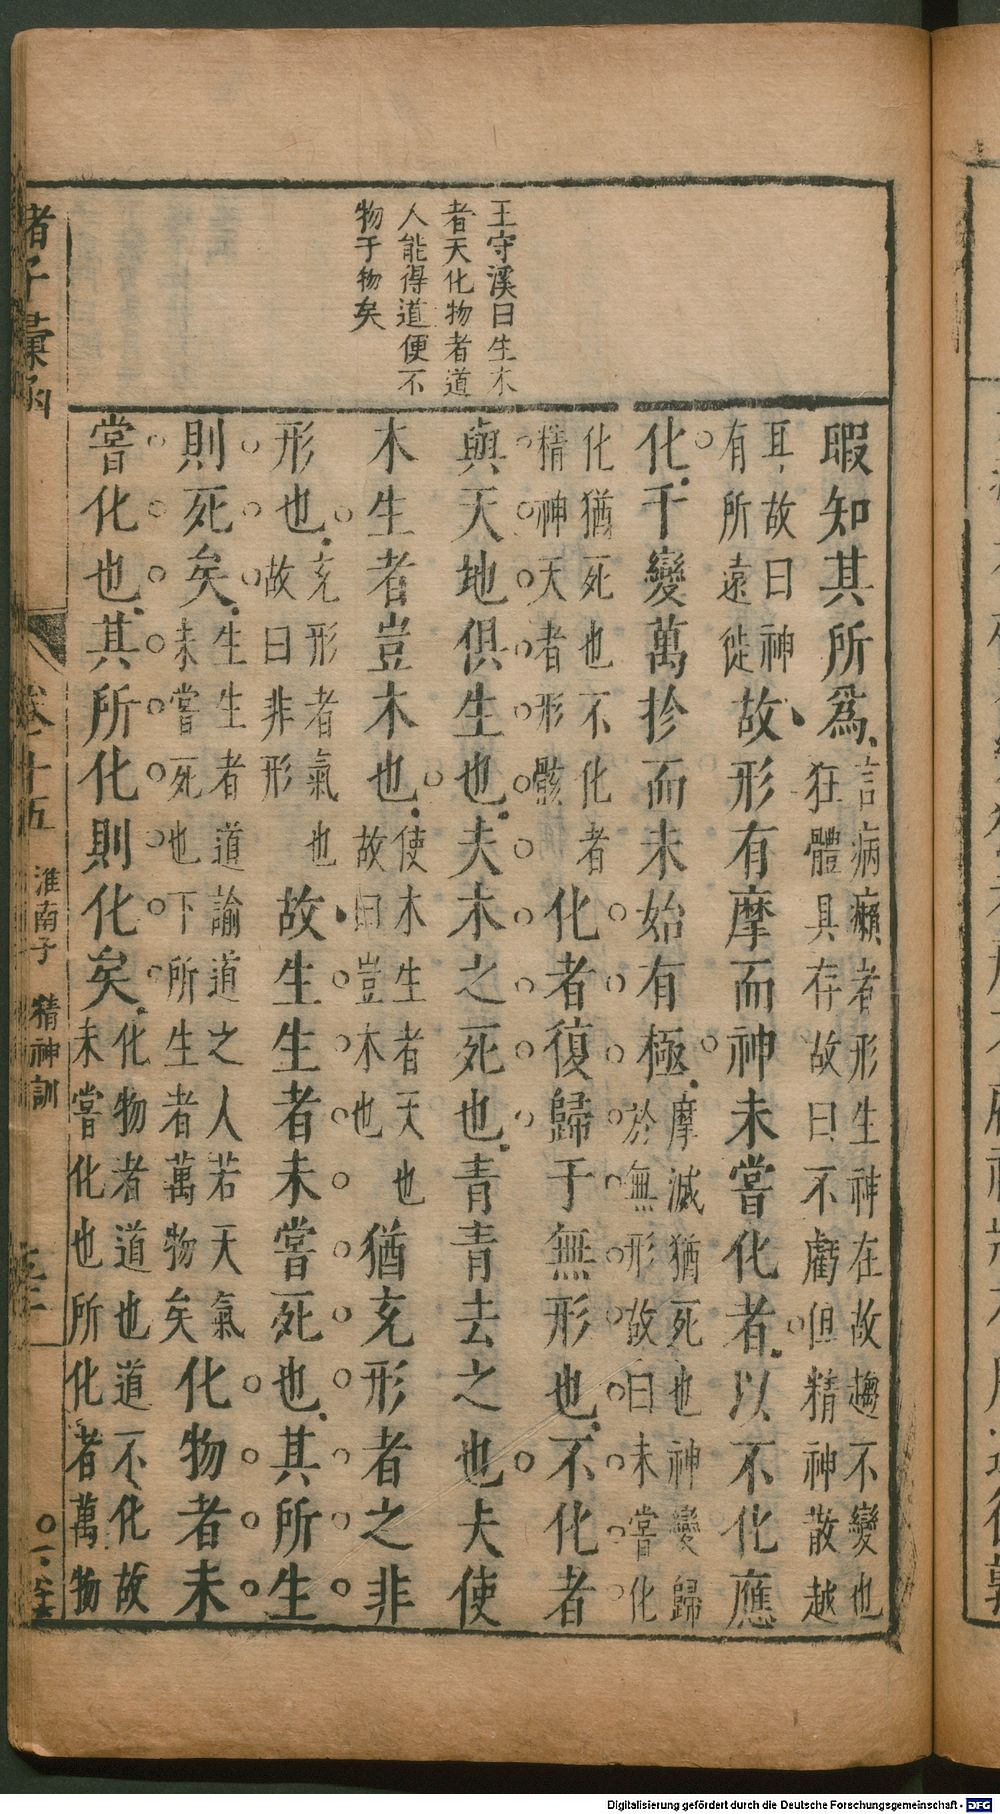 王守溪曰生木
者天化物者道
人能得道便不
物于物矣
暇知其所爲言病癩者形生神在故趨不變也狂體具存故曰不虧但精神散越
耳故曰神有所遠徙故形有摩而神未嘗化者以不化應
化千變萬抮而未始有極摩滅猶死也神變歸於無形故曰未嘗化
化猶死也不化者精神天者形骸化者復歸于無形也不化者
與天地俱生也夫木之死也青青去之也夫使
木生者豈木也使木生者天也故曰豈木也猶充形者之非
形也充形者氣也故曰非形故生生者未嘗死也其所生
則死矣生生者道諭道之人若天氣未嘗死也下所生者萬物矣化物者未
嘗化也其所化則化矣化物者道也道不化故未嘗化也所化者萬物
諸子彙函
卷十五
淮南子 精神訓